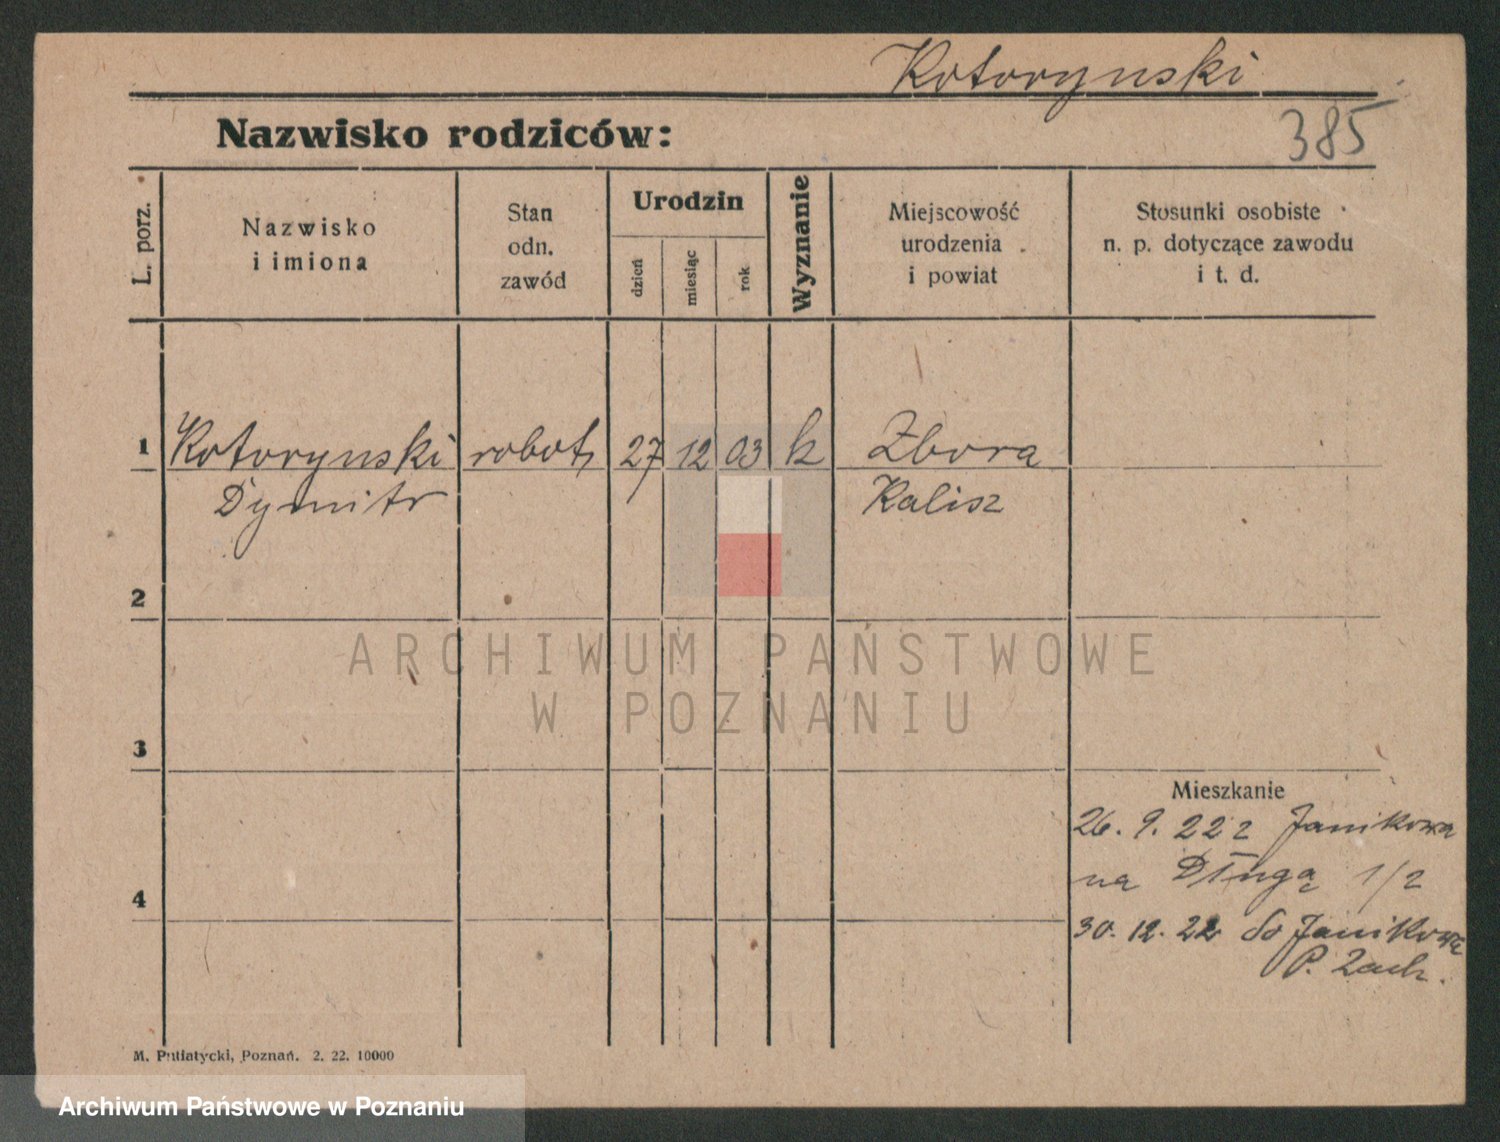 Kotorynski
385
Nazwisko rodziców:
L. porz.
Nazwisko
i imiona
Stan
odn.
zawód
Urodzin
dzień
miesiąc
rok
Wyznanie
Miejscowość
urodzenia
i powiat
Stosunki osobiste
n. p. dotyczące zawodu
i t. d.
1 Kotorynski robot 27 12 03 k Zbora
Dymitr Kalisz
2
ARCHIWUM PAŃSTWOWE
W POZNANIU
3
Mieszkanie
26. 9. 22 z Janikowa
na Długą 1/2
4
30. 12. 22 do Janikowa
P. Zach.
M. Putiatycki, Poznań. 2. 22. 10000
Archiwum Państwowe w Poznaniu